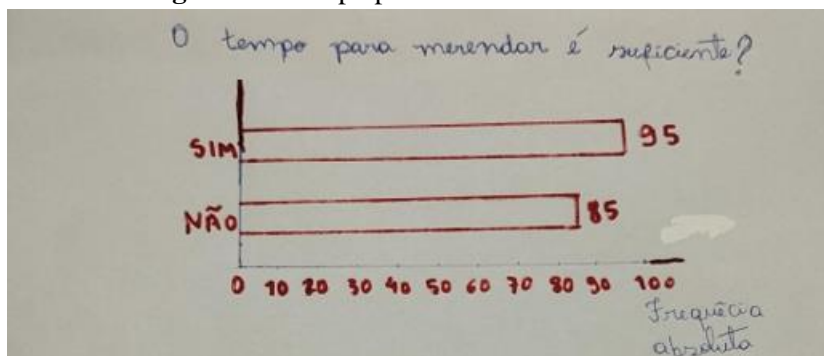 O tempo para merendar é suficiente?
SIM 95
NÃO 85
0 10 20 30 40 50 60 70 80 90 100
Frequêcia
absoluta